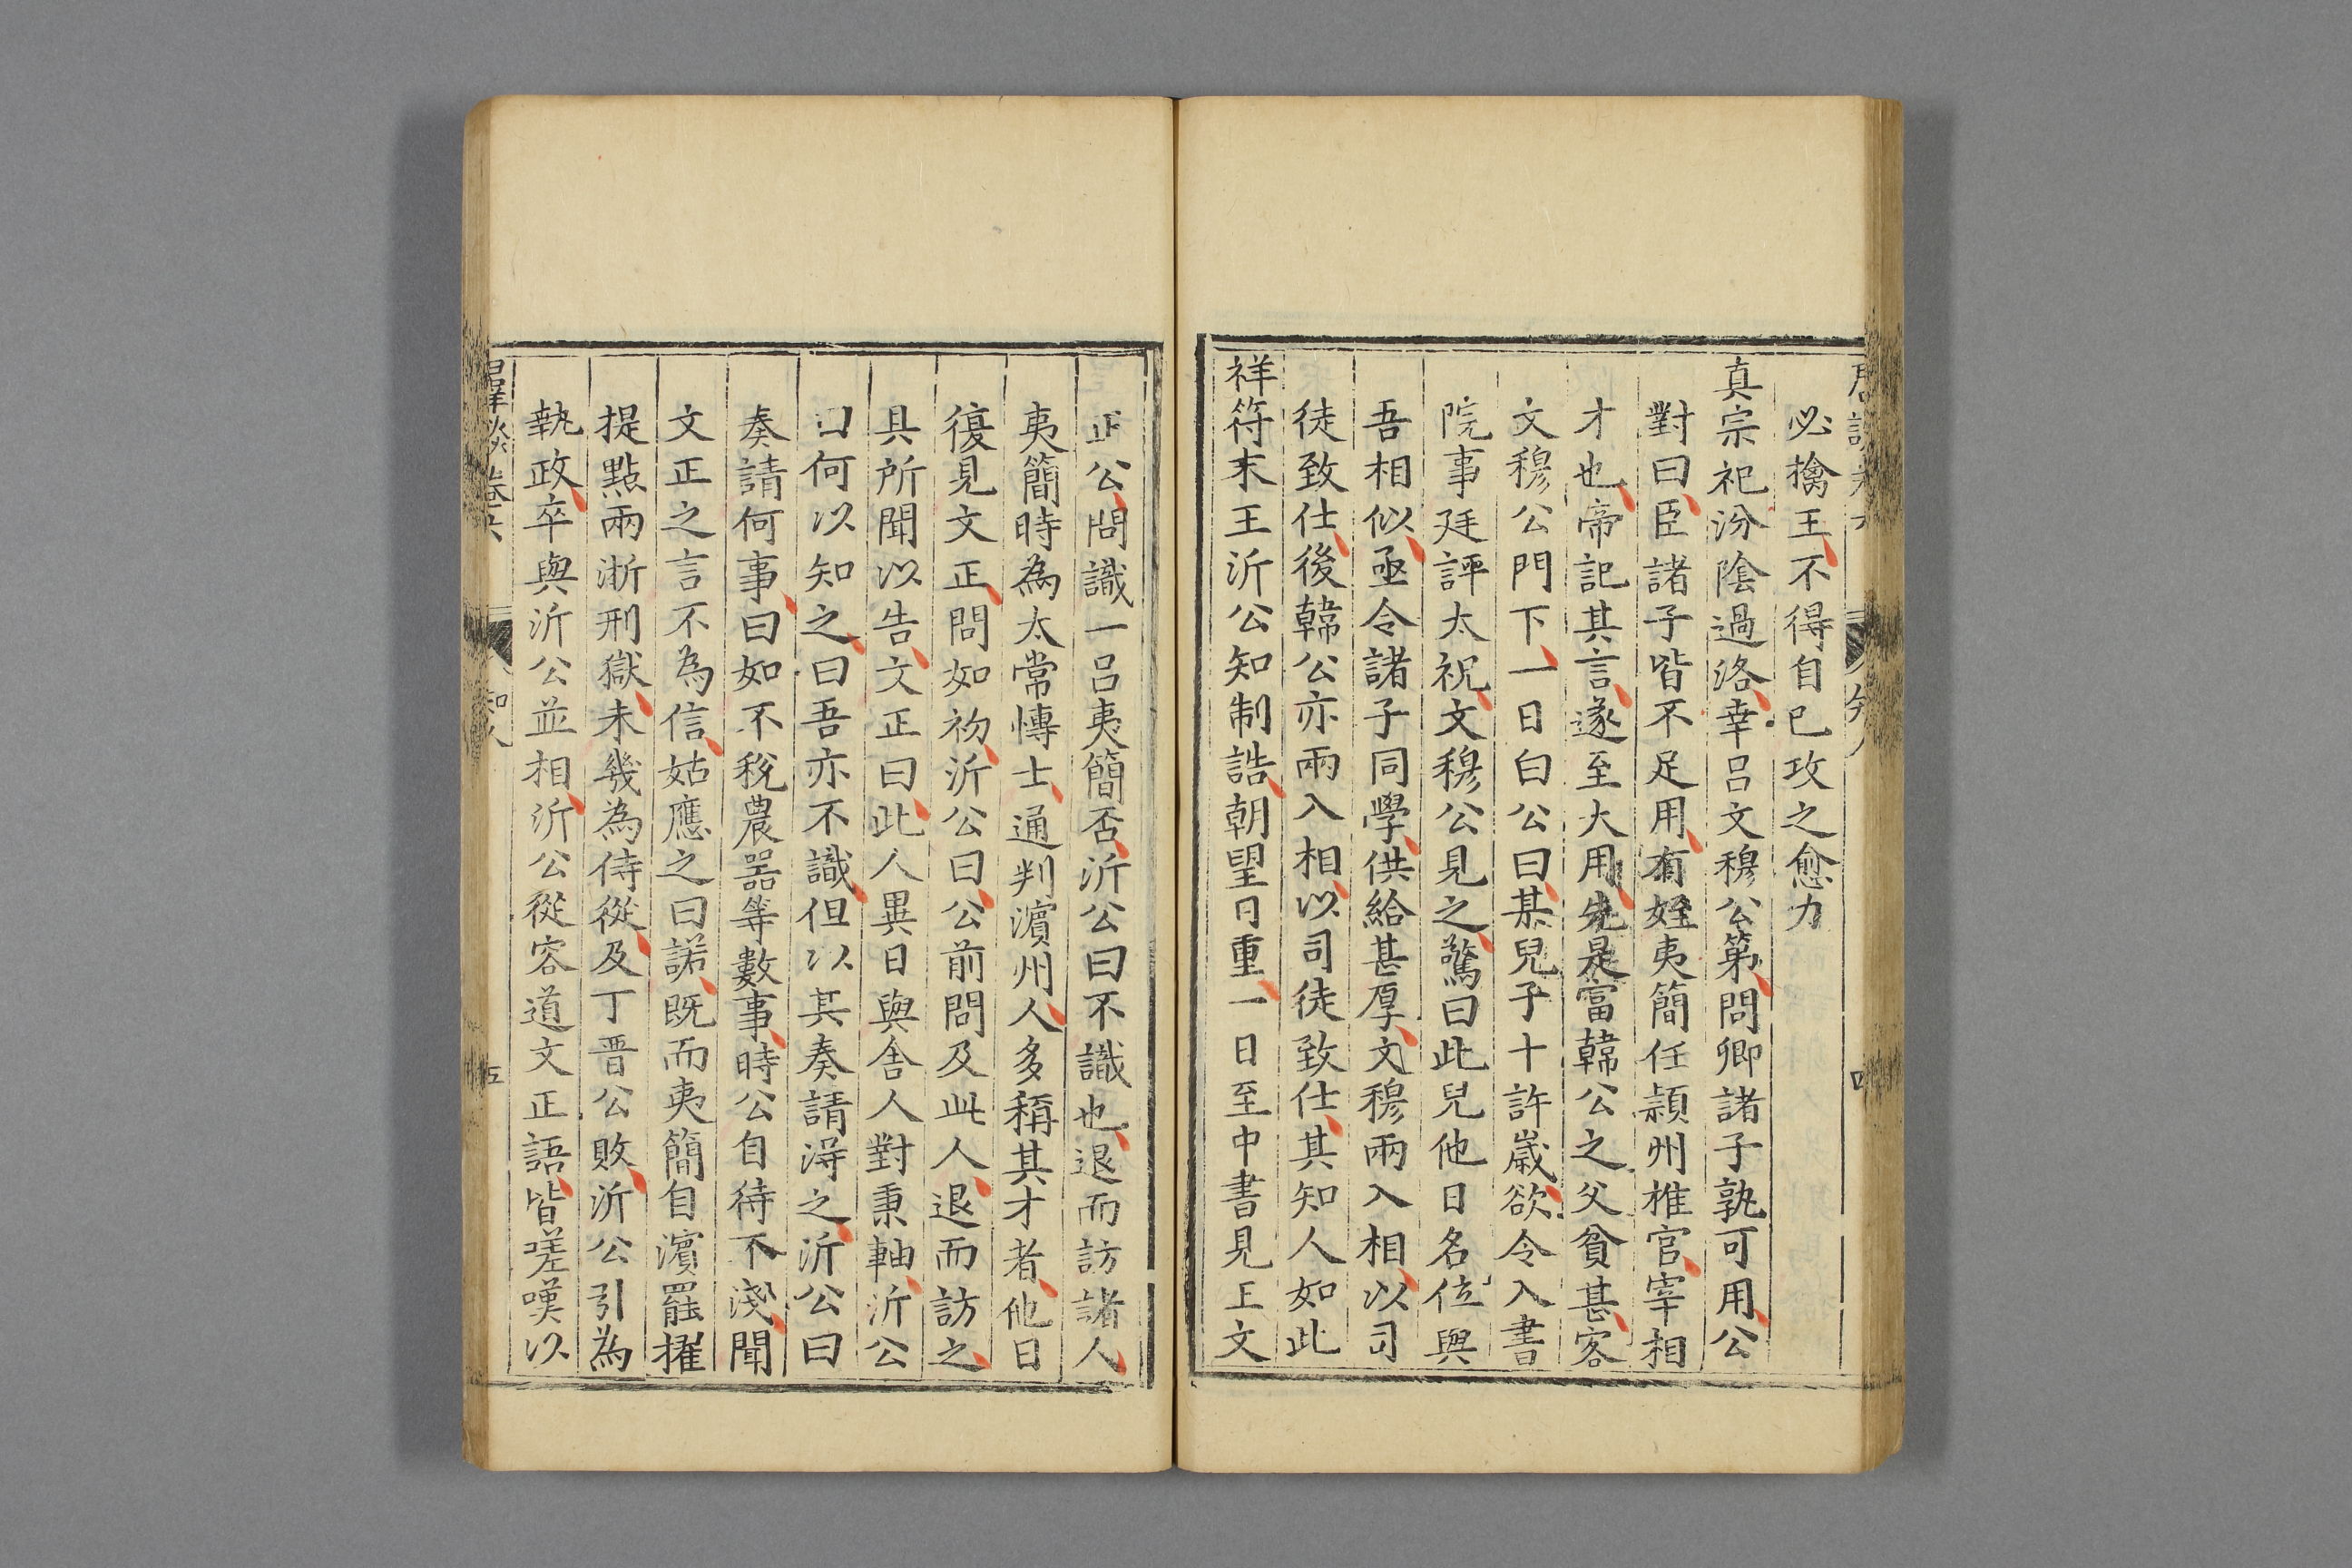 必擒王不得自已攻之愈力
真宗祀汾陰過洛幸呂文穆公第問卿諸子孰可用公
對曰臣諸子皆不足用有姪夷簡任潁州推官宰相
才也帝記其言遂至大用先是富韓公之父貧甚客
文穆公門下一日白公曰某兒子十許歲欲令入書
院事廷評太祝文穆公見之驚曰此兒他日名位與
吾相似亟令諸子同學供給甚厚文穆兩入相以司
徒致仕後韓公亦兩入相以司徒致仕其知人如此
祥符末王沂公知制誥朝望日重一日至中書見王文
正公問識一呂夷簡否沂公曰不識也退而訪諸人
夷簡時為太常博士通判濱州人多稱其才者他日
復見文正問如初沂公曰公前問及此人退而訪之
具所聞以告文正曰此人異日與舍人對秉軸沂公
曰何以知之曰吾亦不識但以其奏請得之沂公曰
奏請何事曰如不稅農器等數事時公自待不淺聞
文正之言不為信姑應之曰諾既而夷簡自濱罷擢
提點兩浙刑獄未幾為侍從及丁晉公敗沂公引為
執政卒與沂公並相沂公從容道文正語皆嗟嘆以
羣談卷六 知人 五